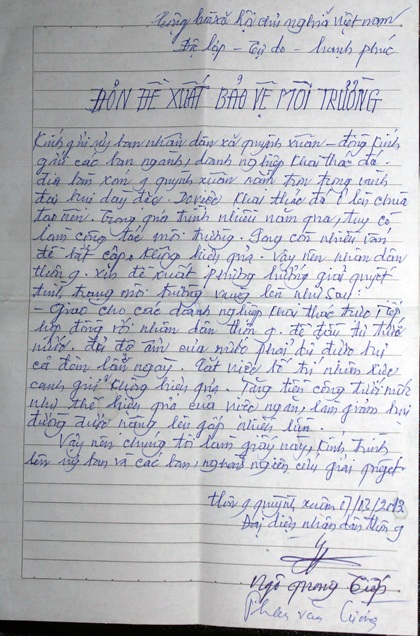 Cộng hòa xã hội chủ nghĩa việt nam
Độ lập - tự do - hạnh phúc
ĐƠN ĐỀ XUẤT BẢO VỆ MÔI TRƯỜNG
Kính ghi uỷ ban nhân dân xã quỳnh xuân - đồng kính
giử các ban nghành, doanh nghiệp khai thác đá
địa bàn xóm g quỳnh xuân nằm trên
bụi dày đặc Do việc khai thác đá
tạo nên. Trong quá trình nhiều năm qua, tuy có
làm công tác môi trường. Song còn nhiều vấn
đề bất cập, không hiệu quả. Vậy nên nhân dân
thôn g. xin đề xuất phương hướng giải quyết
tình trạng môi trường vươn lên như sau
- Giao cho các doanh nghiệp khai thác trực tiếp
hợp đồng với nhân dân thôn g. để đầu tư tưới
nước. để độ ẩm của nước phải bị được bụi
cả đêm lẫn ngày. bố trí nhân lực
canh giử không hiệu quả. Tăng tiền công tưới nước
như thế hiệu quả của việc ngăn, làm giảm bụi
đường được nâng lên gấp nhiều lần.
Vậy nên chúng tôi làm giấy này, kính trình
lên uỷ ban và các ban, nghành nghiên cứu giải quyết
thôn g quỳnh xuân 17/03/2012
Đại diện nhân dân thôn g
Ngô quang Tiếp
Phan văn Cường